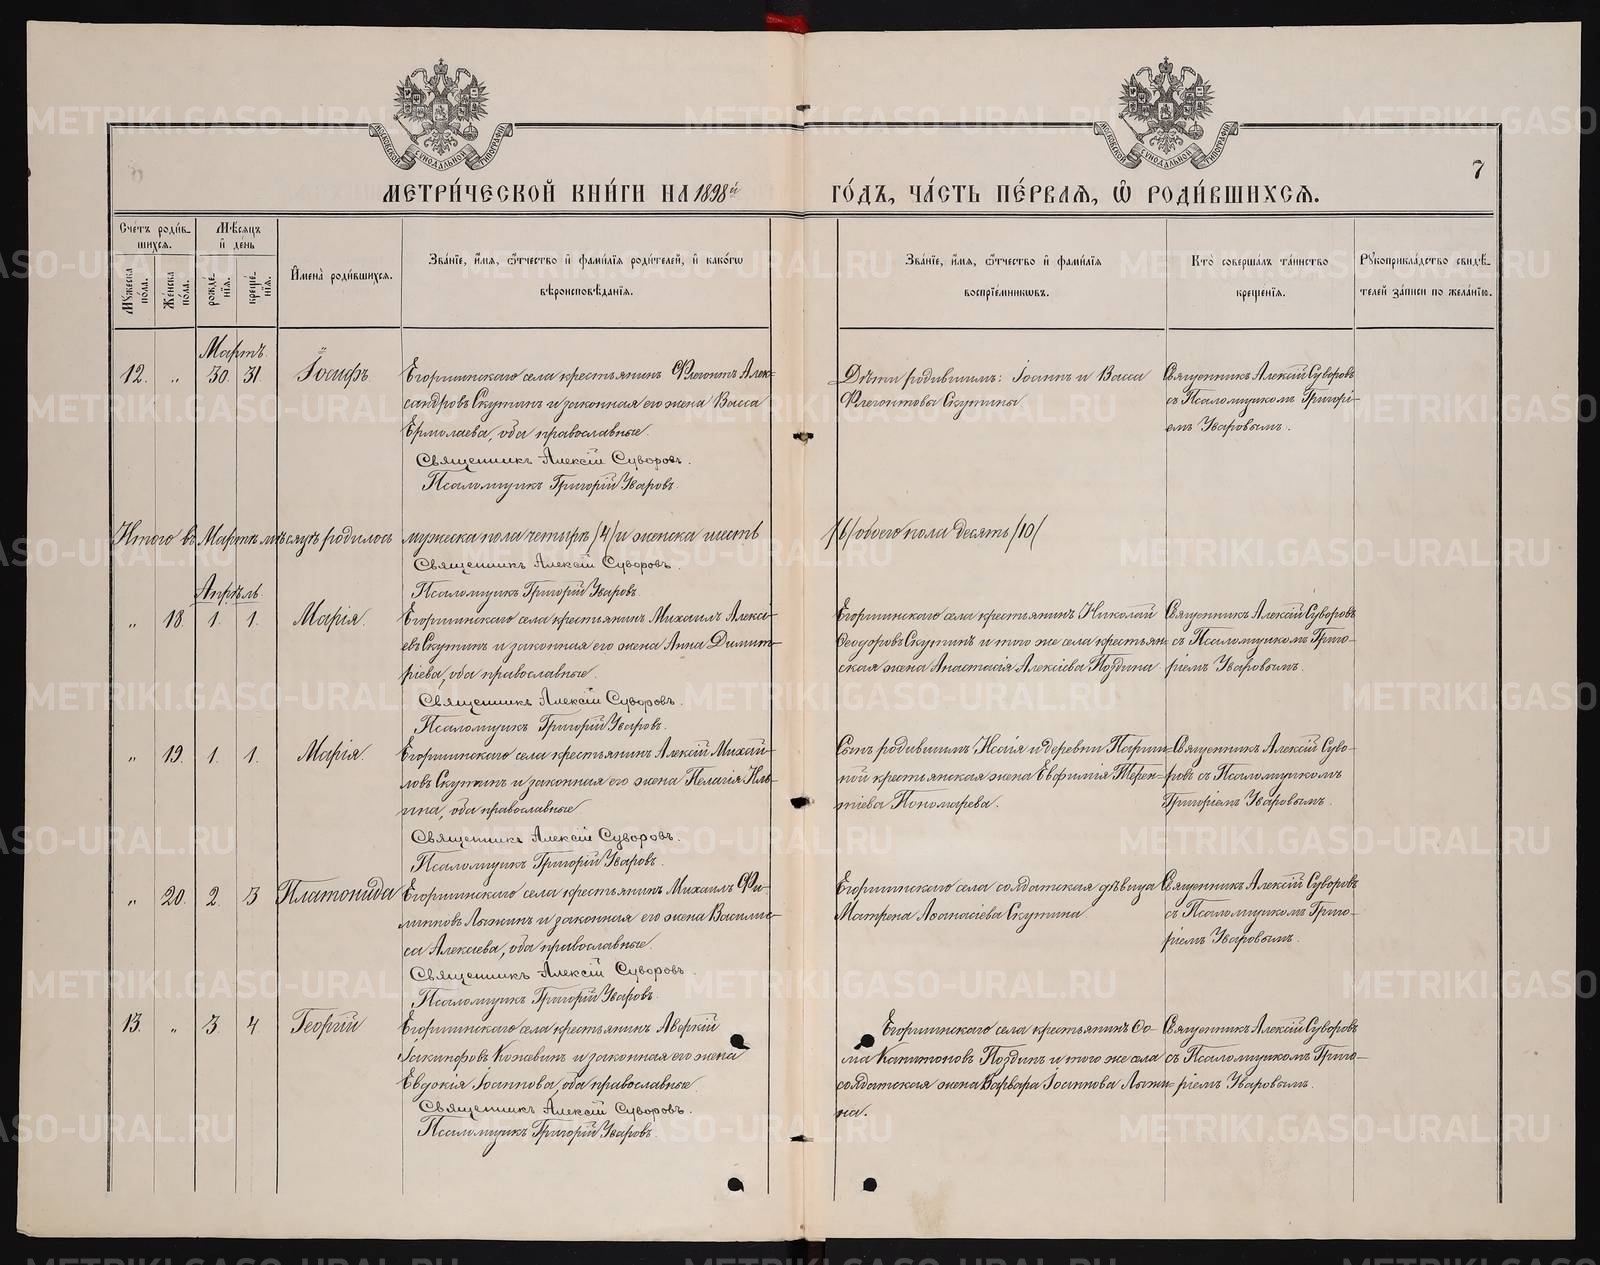 МОСКОВСКОЙ СУНОДАЛЬНОЙ ТИПОГРАФІИ
МОСКОВСКОЙ СУНОДАЛЬНОЙ ТИПОГРАФІИ
7
МЕТРИ́ЧЕСКОЙ КНИ́ГИ НА 1898й
ГО́ДЪ, ЧА́СТЬ ПЕ́РВАѦ, Ѿ РОДИ́ВШИХСѦ.
Сче́тъ роди́в-
шихсѧ.
Мѣ́сѧцъ
и҆ де́нь
Мꙋ́жеска по́ла.
Же́нска по́ла.
рожде́нїѧ.
креще́нїѧ.
И҆мена̀ роди́вшихсѧ.
Зва́нїе, и҆́мѧ, ѻ҆́тчество и҆ фами́лїѧ роди́телей, и҆ како́гѡ
вѣроисповѣ́данїѧ.
Зва́нїе, и҆́мѧ, ѻ҆́тчество и҆ фами́лїѧ
воспрїе́мникѡвъ.
Кто̀ соверша́лъ та́инство
креще́нїѧ.
Рꙋкоприкла́дство свидѣ́-
телей за́писи по жела́нїю.
Мартъ.
12. „ 30. 31. Іосифъ
Егоршинскаго села крестьянинъ Флегонтъ Алек-
сандровъ Скутинъ и законная его жена Васса
Ермолаева, оба православные.
Священникъ Алексій Суворовъ.
Псаломщикъ Григорій Уваровъ.
Дѣти родившимъ: Іоаннъ и Васса
Флегонтовы Скутины
Священникъ Алексій Суворовъ
съ Псаломщикомъ Григорі-
емъ Уваровымъ.
Итого въ Мартѣ мѣсяцѣ родилось мужеска пола четыре /4/ и женска шесть /6/ обоего пола десять /10/
Священникъ Алексій Суворовъ.
Псаломщикъ Григорій Уваровъ
Апрѣль.
„ 18. 1. 1. Марія.
Егоршинскаго села крестьянинъ Михаилъ Алексі-
евъ Скутинъ и законная его жена Анна Димит-
ріева, оба православные.
Священникъ Алексій Суворовъ.
Псаломщикъ Григорій Уваровъ.
Егоршинскаго села крестьянинъ Николай
Ѳеодоровъ Скутинъ и того же села крестьян-
ская жена Анастасія Алексіева Поздина
Священникъ Алексій Суворовъ
съ Псаломщикомъ Григо-
ріемъ Уваровымъ.
„ 19. 1. 1. Марія.
Егоршинскаго села крестьянинъ Алексій Михай-
ловъ Скутинъ и законная его жена Пелагія Иль-
ина, оба православные
Священникъ Алексій Суворовъ.
Псаломщикъ Григорій Уваровъ.
Сынъ родившимъ Исаія и деревни Парши-
ной крестьянская жена Евфимія Терен-
тіева Пономарева.
Священникъ Алексій Суво-
ровъ съ Псаломщикомъ
Григоріемъ Уваровымъ.
„ 20. 2. 3 Платонида
Егоршинскаго села крестьянинъ Михаилъ Фи-
липповъ Лыжинъ и законная его жена Василис-
са Алексіева, оба православные.
Священникъ Алексій Суворовъ
Псаломщикъ Григорій Уваровъ.
Егоршинскаго села солдатская дѣвица
Матрена Аѳанасіева Скутина
Священникъ Алексій Суворовъ
съ Псаломщикомъ Григо-
ріемъ Уваровымъ.
13. „ 3. 4. Георгій
Егоршинскаго села крестьянинъ Аверкій
Іакинфовъ Кожевинъ и законная его жена
Евдокія Іоаннова, оба православные.
Священникъ Алексій Суворовъ.
Псаломщикъ Григорій Уваровъ.
Егоршинскаго села крестьянинъ Ѳо-
ма Капитоновъ Поздинъ и того же села
солдатская жена Варвара Іоаннова Лыжи-
на.
Священникъ Алексій Суворовъ
съ Псаломщикомъ Григо-
ріемъ Уваровымъ.
METRIKI.GASO-URAL.RU